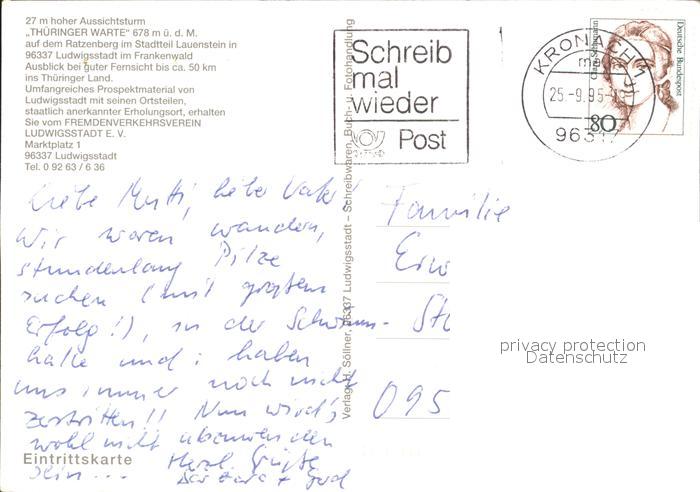 27 m hoher Aussichtsturm
„THÜRINGER WARTE" 678 m ü. d. M.
auf dem Ratzenberg im Stadtteil Lauenstein in
96337 Ludwigsstadt im Frankenwald
Ausblick bei guter Fernsicht bis ca. 50 km
ins Thüringer Land.
Umfangreiches Prospektmaterial von
Ludwigsstadt mit seinen Ortsteilen,
staatlich anerkannter Erholungsort, erhalten
Sie vom FREMDENVERKEHRSVEREIN
LUDWIGSSTADT E. V.
Marktplatz 1
96337 Ludwigsstadt
Tel. 0 92 63 / 6 36
Schreib
mal
wieder
Post
KRONACH 1
25.-9.95
9631
Deutsche Bundespost
80
Verlag: H. Söllner, 96337 Ludwigsstadt – Schreibwaren, Buch- u. Fotohandlung
Liebe Mutti, lieber Vater!
Wir waren wandern,
stundenlang Pilze
suchen (mit großem
Erfolg!), in der Schwimm-
halle und: haben
uns immer noch nicht
zerstritten!! Nun wird's
wohl nicht
sein... Herzl. Grüße
Barbara + Gerd
Eintrittskarte
Familie
095
privacy protection
Datenschutz